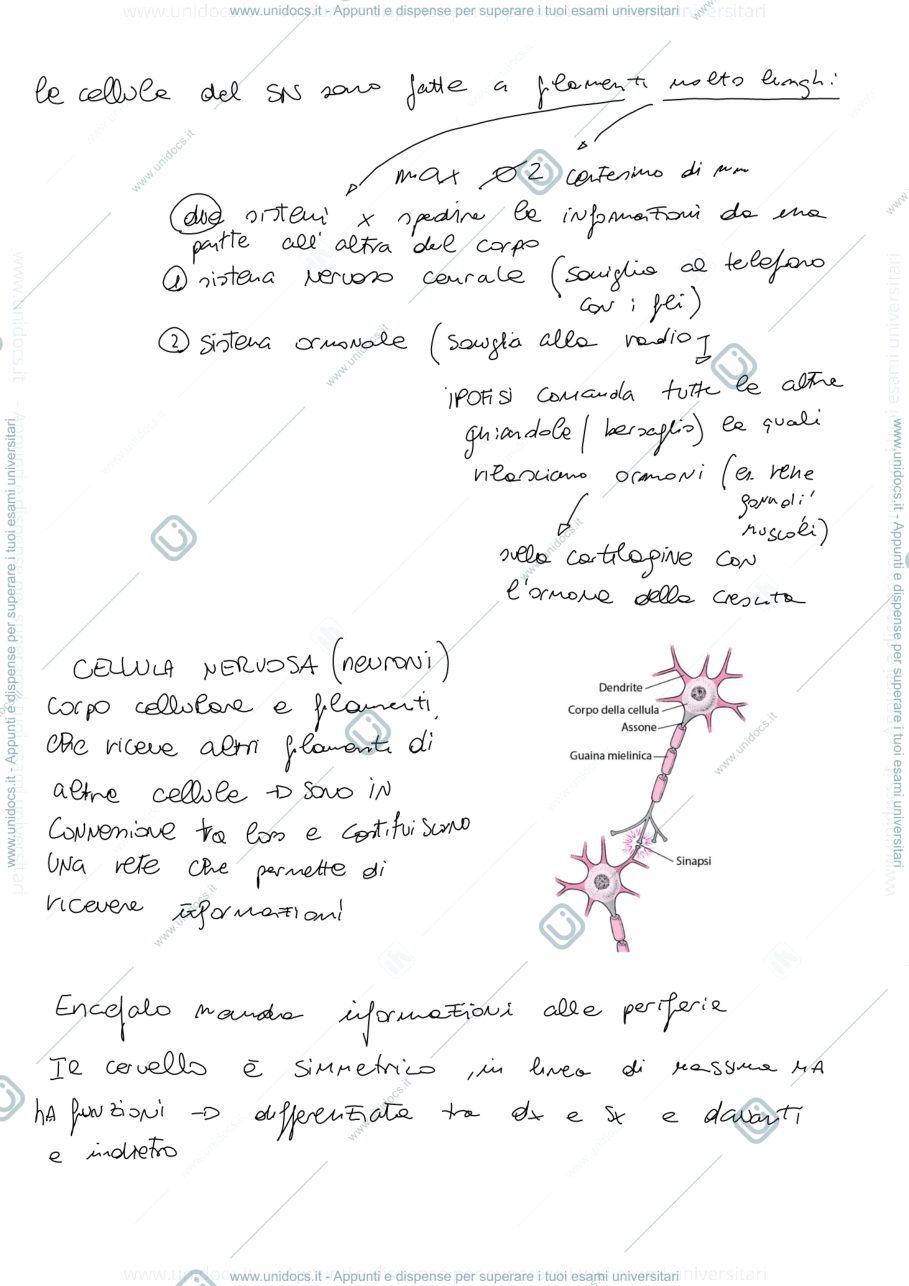 www.unidocs.it - Appunti e dispense per superare i tuoi esami universitari
le cellule del SN sono fatte a filamenti molto lunghi:
max ∅ 2 centesimo di mm
due sistemi x spedire le informazioni da una
partte all'altra del corpo
① sistema nervoso cenrale (somiglia al telefono
con i fili)
② sistema ormonale (somiglia alla radio
IPOFISI comanda tutte le altre
ghiandole (bersaglio) le quali
rilasciano ormoni (es rene
gonadi
muscoli)
sulla cartilagine con
l'ormone della crescita
CELLULA NERVOSA (neuroni)
corpo cellulare e filamenti
che riceve altri filamenti di
altre cellule → sono in
connessione tra loro e costituiscono
una rete che permette di
ricevere informazioni
Dendrite
Corpo della cellula
Assone
Guaina mielinica
Sinapsi
Encefalo manda informazioni alle periferie
Il cervello è simmetrico, in linea di massima MA
hA funzioni → differenziata tra dx e sx e davanti
e indietro
www.unidocs.it - Appunti e dispense per superare i tuoi esami universitari